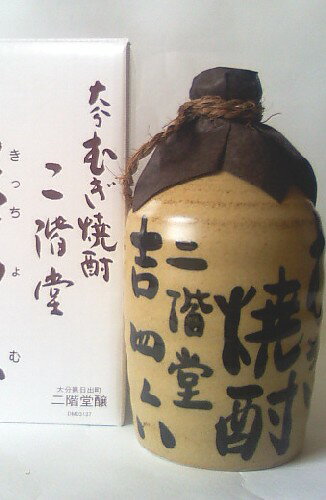 大分むぎ焼酎
二階堂
きっちょむ
大分県日出町
二階堂醸
焼酎
二階堂
吉四六